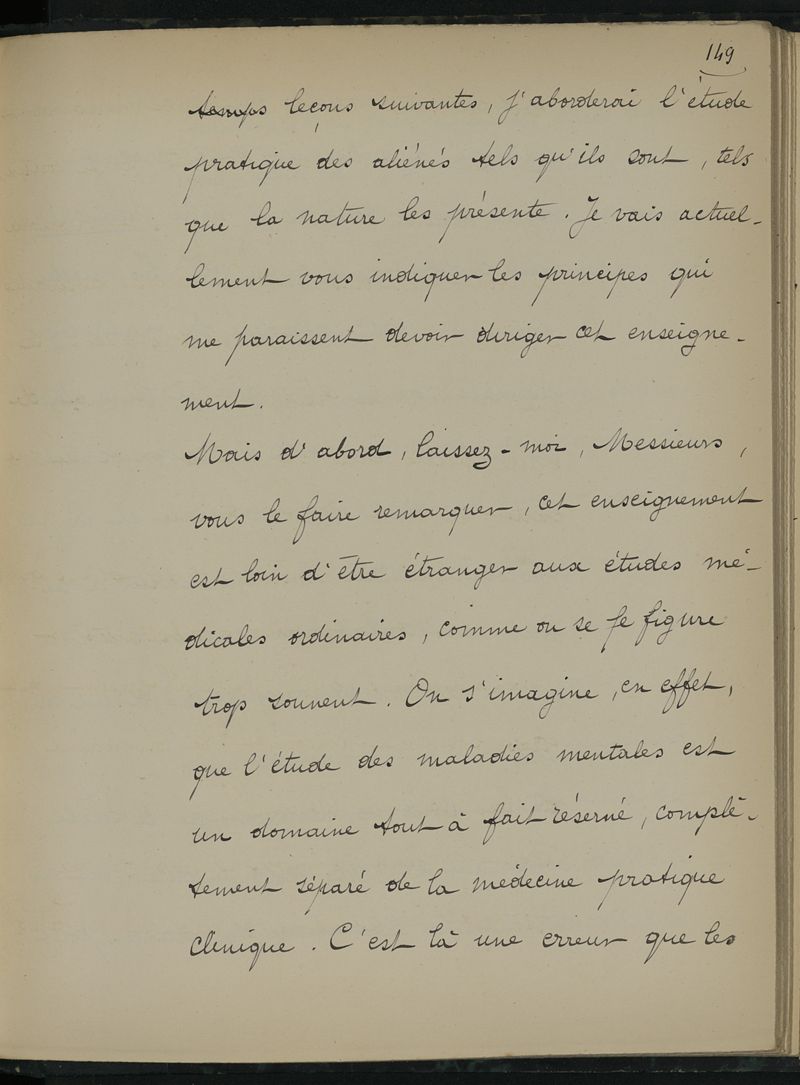 149
temps leçons suivantes, j'aborderai l'étude
pratique des aliénés tels qu'ils sont, tels
que la nature les présente. Je vais actuel-
lement vous indiquer les principes qui
me paraissent devoir diriger cet enseigne-
ment.
Mais d'abord, laissez-moi, Messieurs,
vous le faire remarquer, cet enseignement
est loin d'être étranger aux études mé-
dicales ordinaires, comme on se le figure
trop souvent. On s'imagine, en effet,
que l'étude des maladies mentales est
un domaine tout à fait réservé, complè-
tement séparé de la médecine pratique
clinique. C'est là une erreur que les